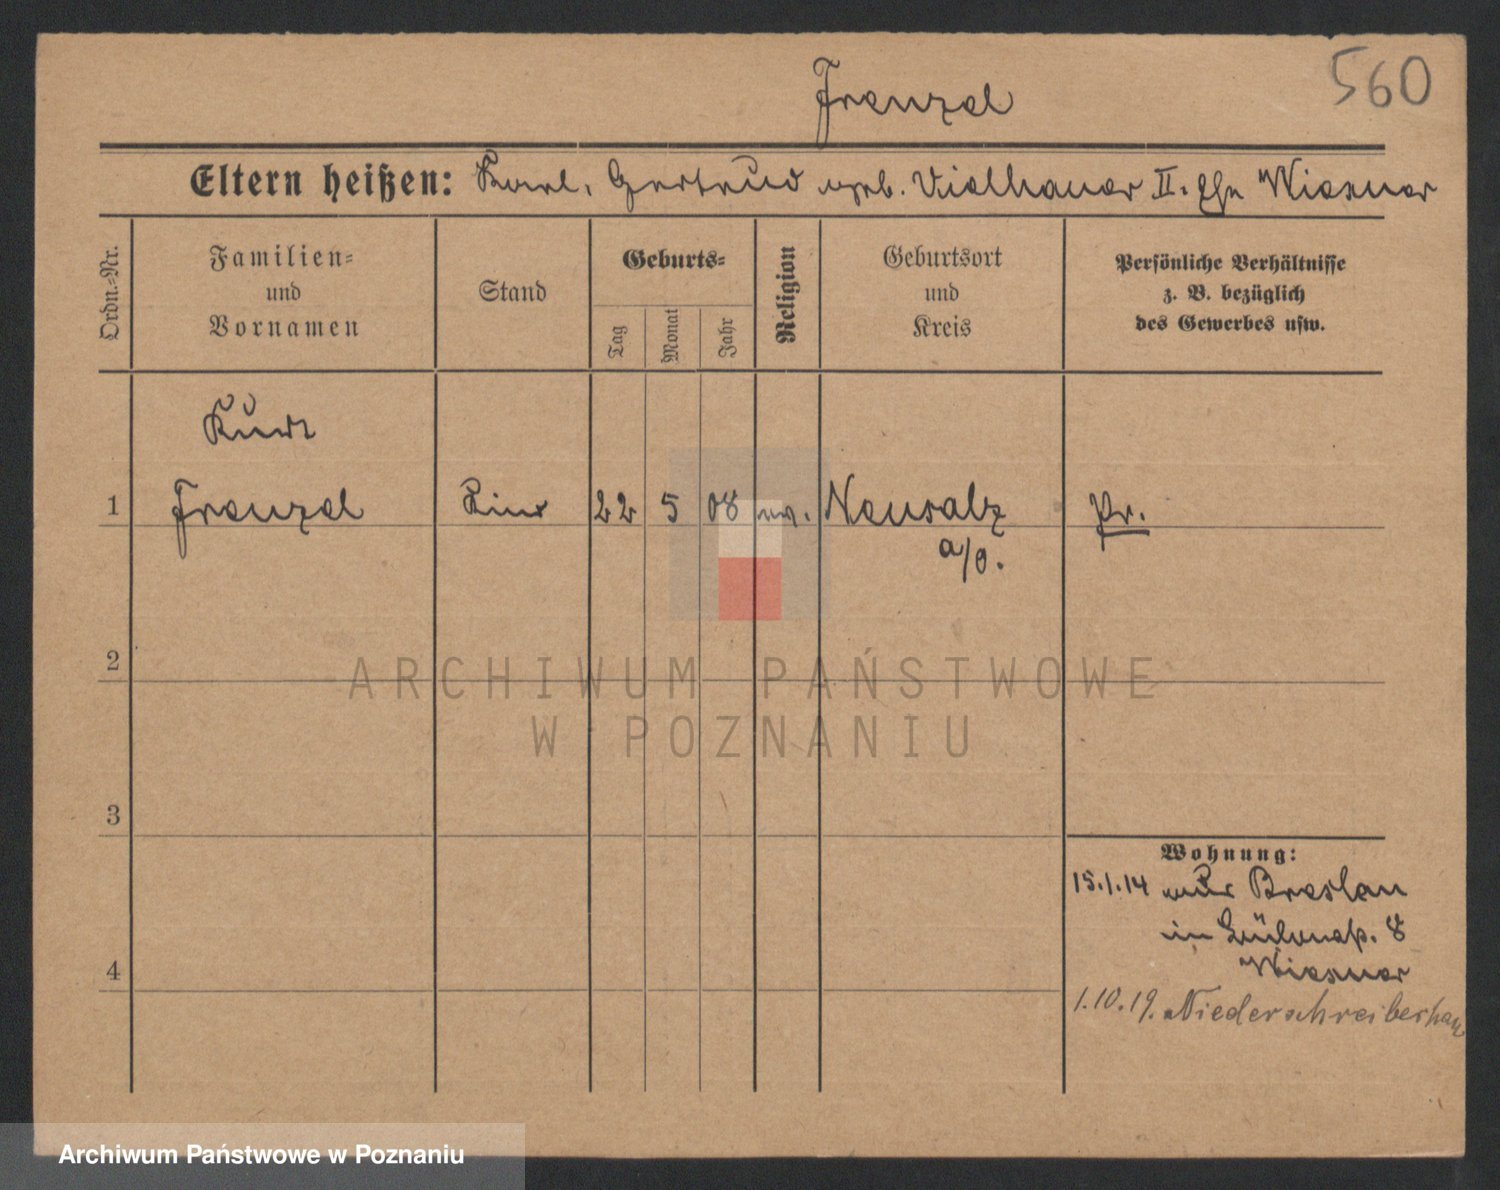 Frenzel
560
Eltern heißen: Karl, Gertrud geb. Vielhauer II. Ehe Wiesner
Ordn.-Nr.
Familien-
und
Vornamen
Stand
Geburts-
Tag
Monat
Jahr
Religion
Geburtsort
und
Kreis
Persönliche Verhältnisse
z. B. bezüglich
des Gewerbes usw.
Kurt
1 Frenzel Kind 22 5 08 ev. Neusalz Pr.
a/O.
ARCHIWUM PAŃSTWOWE
W POZNANIU
2
3
4
Wohnung:
15.1.14 Breslau
in 8
Wiesner
1.10.19. Niederschreiberhau
Archiwum Państwowe w Poznaniu